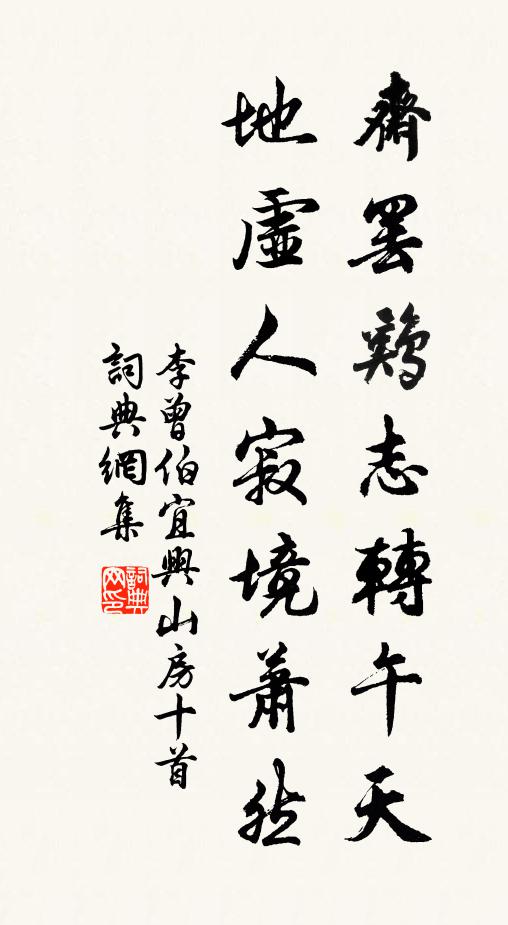 齋罷鷄志轉午天
地虛人寂境蕭然
李曾伯宜興山房十首
詞典網集
詞典網印